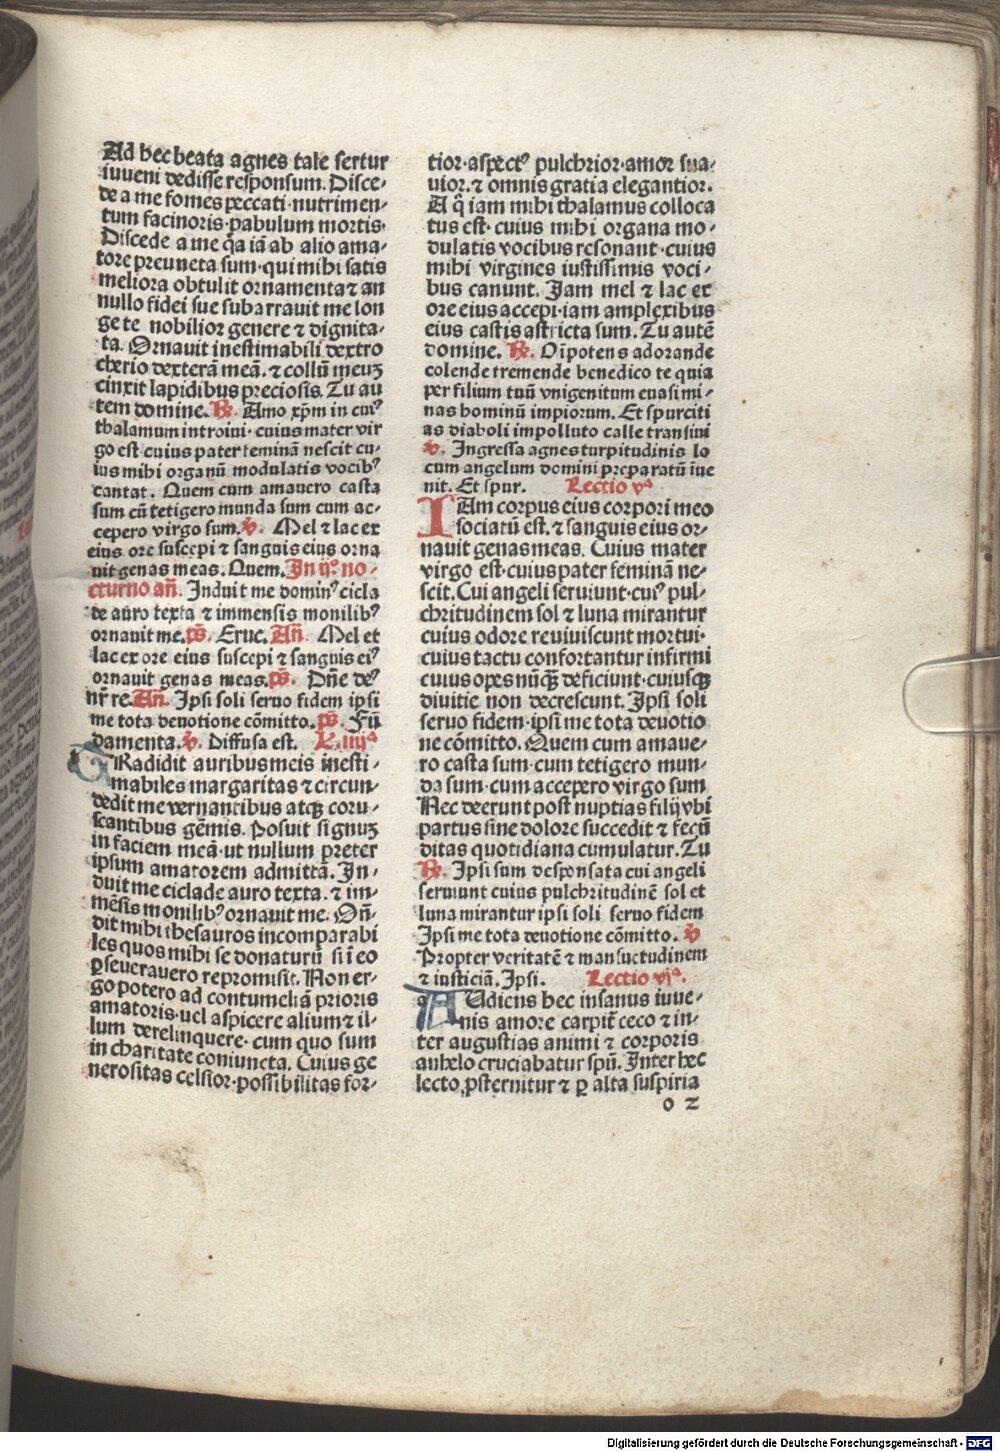 Ad hec beata agnes tale fertur
iuueni dedisse responsum. Disce-
de a me fomes peccati·nutrimen-
tum facinoris·pabulum mortis·
Discede a me q̄a iā ab alio ama-
tore preuneta sum·qui mihi satis
meliora obtulit ornamenta ⁊ an
nullo fidei sue subarrauit me lon
ge te nobilior genere ⁊ dignita-
ta. Ornauit inestimabili dextro
cherio dexterā meā. ⁊ collū meuꝫ
cinxit lapidibus preciosis. Tu au
tem domine. ℟. Amo xp̄m in cuiꝰ
thalamum introiui·cuius mater vir
go est cuius pater feminā nescit cu-
ius mihi organū modulatis vocibꝰ
cantat. Quem cum amauero casta
sum cū tetigero munda sum cum ac-
cepero virgo sum. ℣. Mel ⁊ lac ex
eius ore suscepi ⁊ sanguis eius orna
uit genas meas. Quem. In ijº no-
cturno an̄. Induit me dominꝰ cicla
de auro texta ⁊ immensis monilibꝰ
ornauit me. ps̄. Eruc. An̄. Mel et
lac ex ore eius suscepi ⁊ sanguis eiꝰ
ornauit genas meas. ps̄. Dn̄e deꝰ
nr̄ re. An̄. Ipsi soli seruo fidem ipsi
me tota deuotione cōmitto. ps̄. Fū
damenta. ℣. Diffusa est. L. iiijª
TRadidit auribus meis inesti-
mabiles margaritas ⁊ circun-
dedit me vernantibus atqꝫ coru-
scantibus gēmis. Posuit signuꝫ
in faciem meā·ut nullum preter
ipsum amatorem admittā. In-
duit me ciclade auro texta. ⁊ im-
mēsis monilibꝰ ornauit me. On̄-
dit mihi thesauros incomparabi
les quos mihi se donaturū si i eo
ꝑseuerauero repromisit. Non er-
go potero ad contumeliā prioris
amatoris·uel aspicere alium ⁊ il-
lum derelinquere·cum quo sum
in charitate coniuncta. Cuius ge
nerositas celsior·possibilitas for-
tior·aspectꝰ pulchrior·amor sua-
uior. ⁊ omnis gratia elegantior.
A q̄ iam mihi thalamus colloca
tus est·cuius mihi organa mo-
dulatis vocibus resonant·cuius
mihi virgines iustissimis voci-
bus canunt. Jam mel ⁊ lac ex
ore eius accepi·iam amplexibus
eius castis astricta sum. Tu autē
domine. ℟. Oīpotens adorande
colende tremende benedico te quia
per filium tuū vnigenitum euasi mi-
nas hominū impiorum. Et spurciti
as diaboli impolluto calle transiui
℣. Ingressa agnes turpitudinis lo
cum angelum domini preparatū īue
nit. Et spur. Lectio vª
IAm corpus eius corpori meo
sociatū est. ⁊ sanguis eius or-
nauit genas meas. Cuius mater
virgo est·cuius pater feminā ne-
scit. Cui angeli seruiunt·cuiꝰ pul-
chritudinem sol ⁊ luna mirantur
cuius odore reuiuiscunt mortui·
cuius tactu confortantur infirmi
cuius opes nūqꝫ deficiunt·cuiusqꝫ
diuitie non decrescunt. Ipsi soli
seruo fidem·ipsi me tota deuotio
ne cōmitto. Quem cum amaue-
ro casta sum·cum tetigero mun-
da sum·cum accepero virgo sum
Nec deerunt post nuptias filij vbi
partus sine dolore succedit ⁊ fecū
ditas quotidiana cumulatur. Tu
℟. Ipsi sum desponsata cui angeli
seruiunt cuius pulchritudinē sol et
luna mirantur ipsi soli seruo fidem
Ipsi me tota deuotione cōmitto. ℣
Propter veritatē ⁊ mansuetudinem
⁊ iusticiā. Ipsi. Lectio vjª.
AUdiens hec insanus iuue-
nis amore carpit̄ ceco ⁊ in-
ter augustias animi ⁊ corporis
anhelo cruciabatur spū. Inter hec
lecto ꝓsternitur ⁊ ꝑ alta suspiria
o 2
Digitalisierung gefördert durch die Deutsche Forschungsgemeinschaft - DFG